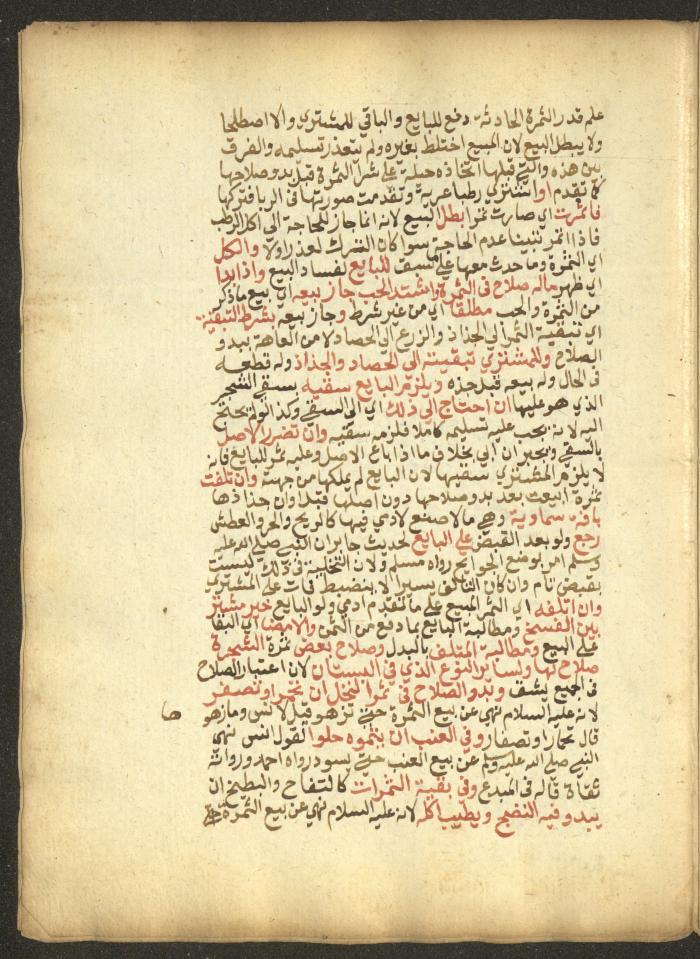 علم قدر الثمرة الحادثة دفع للبايع والباقي للمشتري والا اصطلحا
ولا يبطل البيع لان المبيع اختلط بغيره ولم يتعذر تسليمه والفرق
بين هذه والتي قبلها اتخاذه حيلة على شرا الثمرة قبل بدو صلاحها
كما تقدم او اشتري رطبا عرية وتقدمت صورتها في الربا فتركها
فاثمرت اي صارت تمرا بطل البيع لانه انما جاز للحاجة الي اكل الرطب
فاذا اتمر تبينا عدم الحاجة سوا كان الترك لعذر اولا والكل
اي الثمرة وما حدث معها على ما سبق للبايع لفساد البيع واذا بدا
اي ظهر ماله صلاح في الثمرة واشتد الحب جاز بيعه اي بيع ما ذكر
من الثمرة والحب مطلقا اي من غير شرط وجاز بيعه بشرط التبقية
اي تبقية الثمر الي الجذاذ والزرع الي الحصاد لامن العاهة ببدو
الصلاح وللمشتري تبقيته الي الحصاد والجذاذ وله قطعه
في الحال وله بيعه قبل جذه ويلزم البايع سقيه بسقي الشجر
الذي هو عليها ان احتاج الي ذلك اي الي السقي وكذا لو لم يحتج
اليه لانه يجب عليه تسليمه كاملا فلزمه سقيه وان تضرر الاصل
بالسقي ويجبر ان ابي بخلاف ما اذا باع الاصل وعليه ثمر للبايع فانه
لا يلزم المشتري سقيها لان البايع لم يملكها من جهته وان تلفت
ثمرة ابيعت بعد بدو صلاحها دون اصلها قبل اوان جذاذها
بافة سماوية وهي ما لا صنع لادمي فيها كالريح والحر والعطش
رجع ولو بعد القبض على البايع لحديث جابر ان النبي صلى الله عليه
وسلم امر بوضع الجوايح رواه مسلم ولان التخلية في ذلك ليست
بقبض تام وان كان التالف يسيرا لا ينضبط فات على المشتري
وان اتلفه اي الثمر المبيع على ما تقدم ادمي ولو البايع خير مشتر
بين الفسخ ومطالبة البايع بما دفع من الثمن والامضا اي البقا
على البيع ومطالبة المتلف بالبدل وصلاح بعض ثمرة الشجرة
صلاح لها ولساير النوع الذي في البستان لان اعتبار الصلاح
في الجميع يشق وبدو الصلاح في ثمر النخل ان تحمر او تصفر
لانه عليه السلام نهي عن بيع الثمرة حتي تزهو قيل لانس وما زهوها
قال تحمار او تصفار وفي العنب ان يتموه حلوا لقول انس نهي
النبي صلى الله عليه وسلم عن بيع العنب حتي يسود رواه احمد ورواته
ثقاة قاله في المبدع وفي بقية الثمرات كالتفاح والبطيخ ان
يبدو فيه النضج ويطيب اكله لانه عليه السلام نهي عن بيع الثمرة حتي